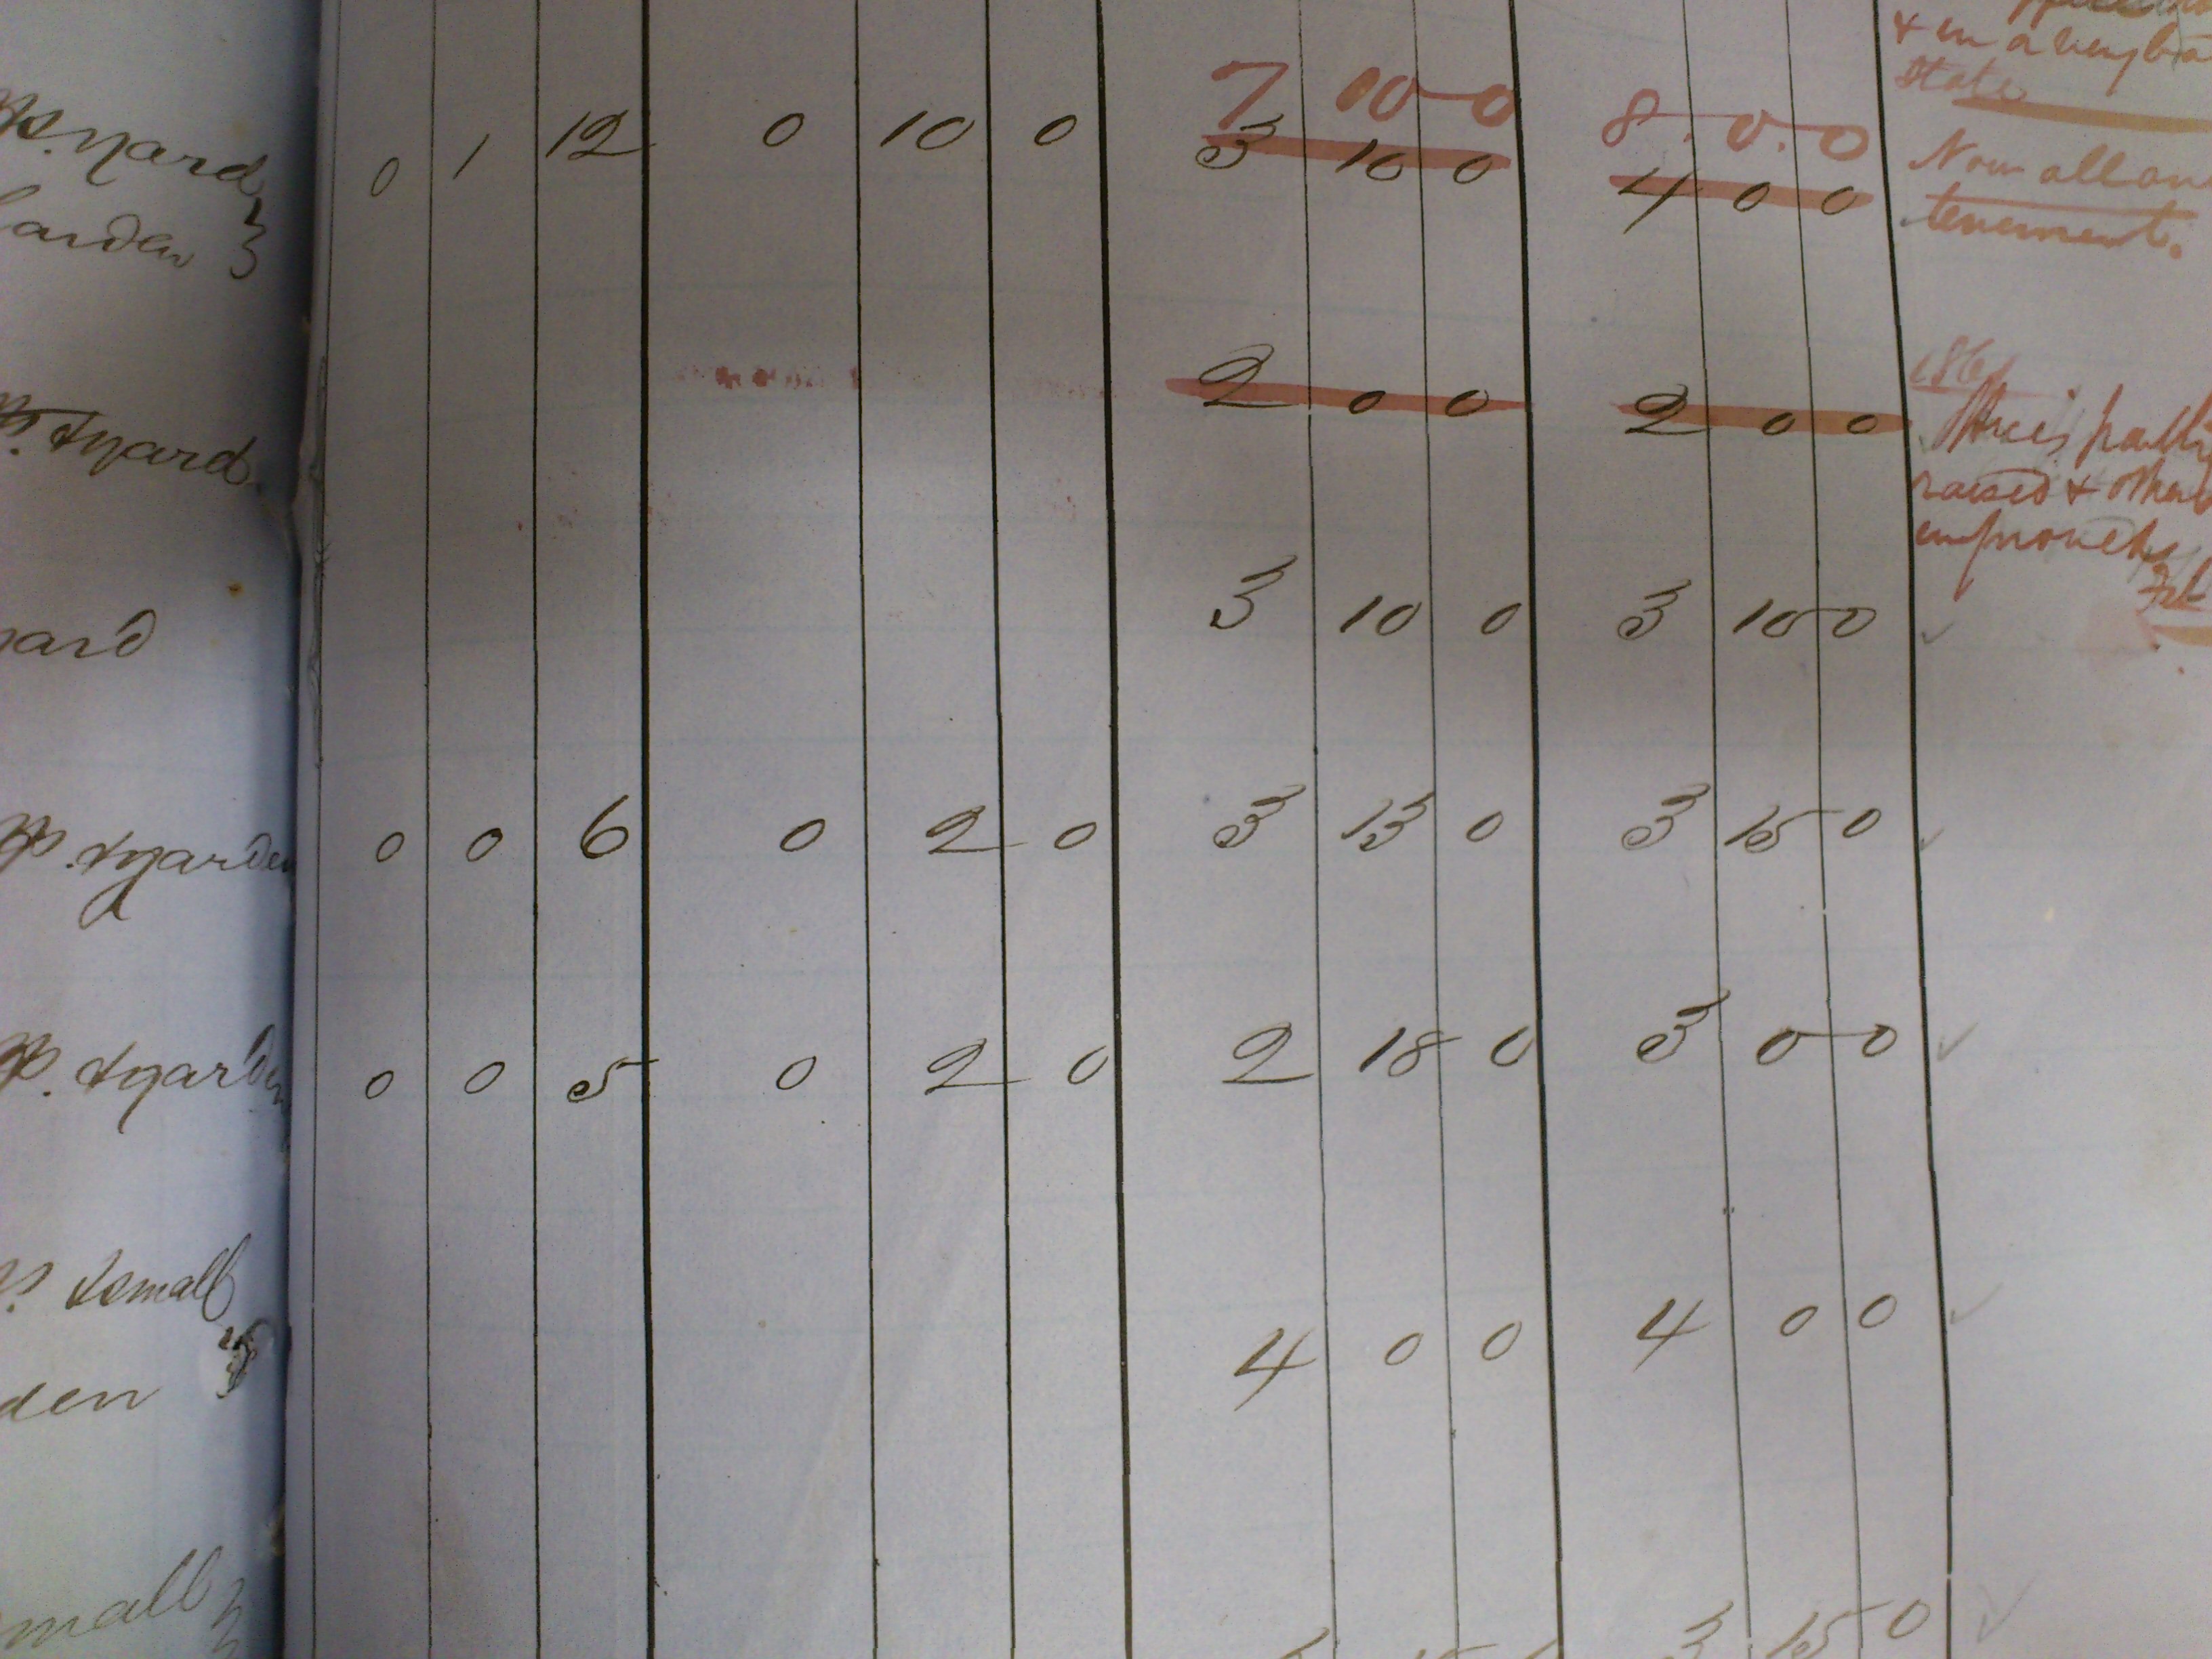 & in a very ba
State
7 10 0
8.0.0
yard 0 1 12 0 10 0 3 10 0 4 0 0 Now all one
arden tenement.
186
& yard 2 0 0 2 0 0
raised & other
improvets
ard 3 10 0 3 10 0
& garden 0 0 6 0 2 0 3 13 0 3 15 0
& garden 0 0 5 0 2 0 2 18 0 3 0 0
& small
den 4 0 0 4 0 0
mall 3 15 0